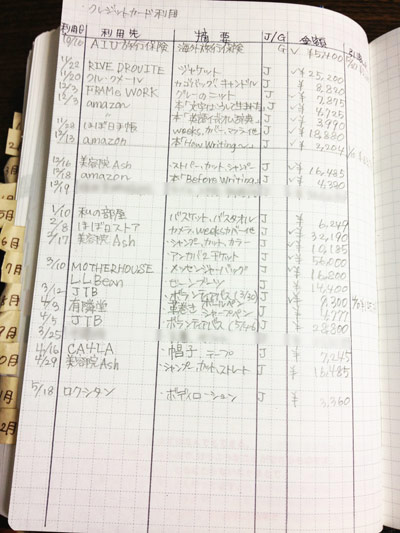 クレジットカード利用
利用日 利用先 摘要 J/G 金額
10/16 AIU旅行保険 海外旅行保険 G ✓ ¥52400
11/22 RIVE DROUITE ジャケット J ✓¥ 25,200
11/20 J ¥ 8,820
12/3 FRAMe WORK グレーのニット J ✓¥ 7,875
12/3 amazon J ✓¥ 4,725
〃 〃 J ¥ 3,990
11/22 ほぼ日手帳 weeks, カバー, マフラー他 J ✓¥ 18,880
12/13 amazon 本「How Writing〜」 J ¥ 2,204
12/16 美容院 Ash ・ストパー, カット, シャンプー J ✓¥ 16,485
12/18 amazon 本「Before Writing」 J ✓¥ 4,390
12/19
1/10 私の部屋 バスケット, バスタオル J ¥ 6,249
2/8 ほぼ日ストア カメラ, weeksカバー他 J ¥ 32,190
2/17 美容院 Ash ・シャンプー, カット, カラー J ¥ 16,185
J ¥ 56,000
3/10 MOTHERHOUSE メッセンジャーバッグ J ¥ 16,800
L.L.Bean レーンブーツ J ¥ 14,400
3/12 JTB ・ボランティアバス (3/30) J ¥ 9,300
4/3 有隣堂 J ¥ 6,777
4/5 JTB ボランティアバス J ¥ 28,800
3/25
4/16 CA4LA ・帽子, テープ J ¥ 7,245
4/29 美容院 Ash ・シャンプー, カット, ストレート J ¥ 16,485
5/18 ロクシタン ・ボディローション J ¥ 3,360
2月
3月
5月
6月
7月
8月
9月
0月
1月
2月